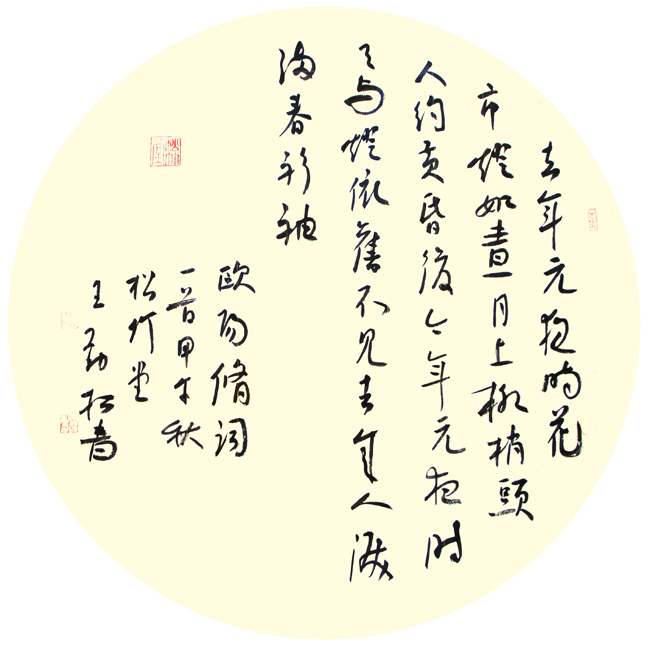 去年元夜時花
市燈如晝月上柳梢頭
人約黃昏後今年元夜时
月与燈依舊不見去年人淚
滿春衫袖
歐陽脩詞
一首甲午秋
松竹堂
王勁松書